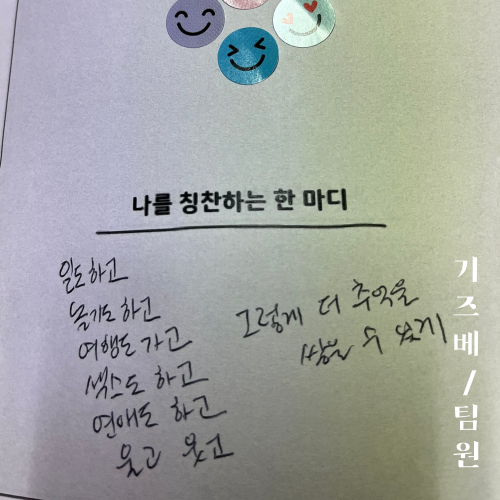 나를 칭찬하는 한 마디
일도 하고
놀기도 하고
여행도 가고
섹스도 하고
연애도 하고
울고 웃고
그렇게 더 추억을
쌓을 수 있게
기즈베/팀원